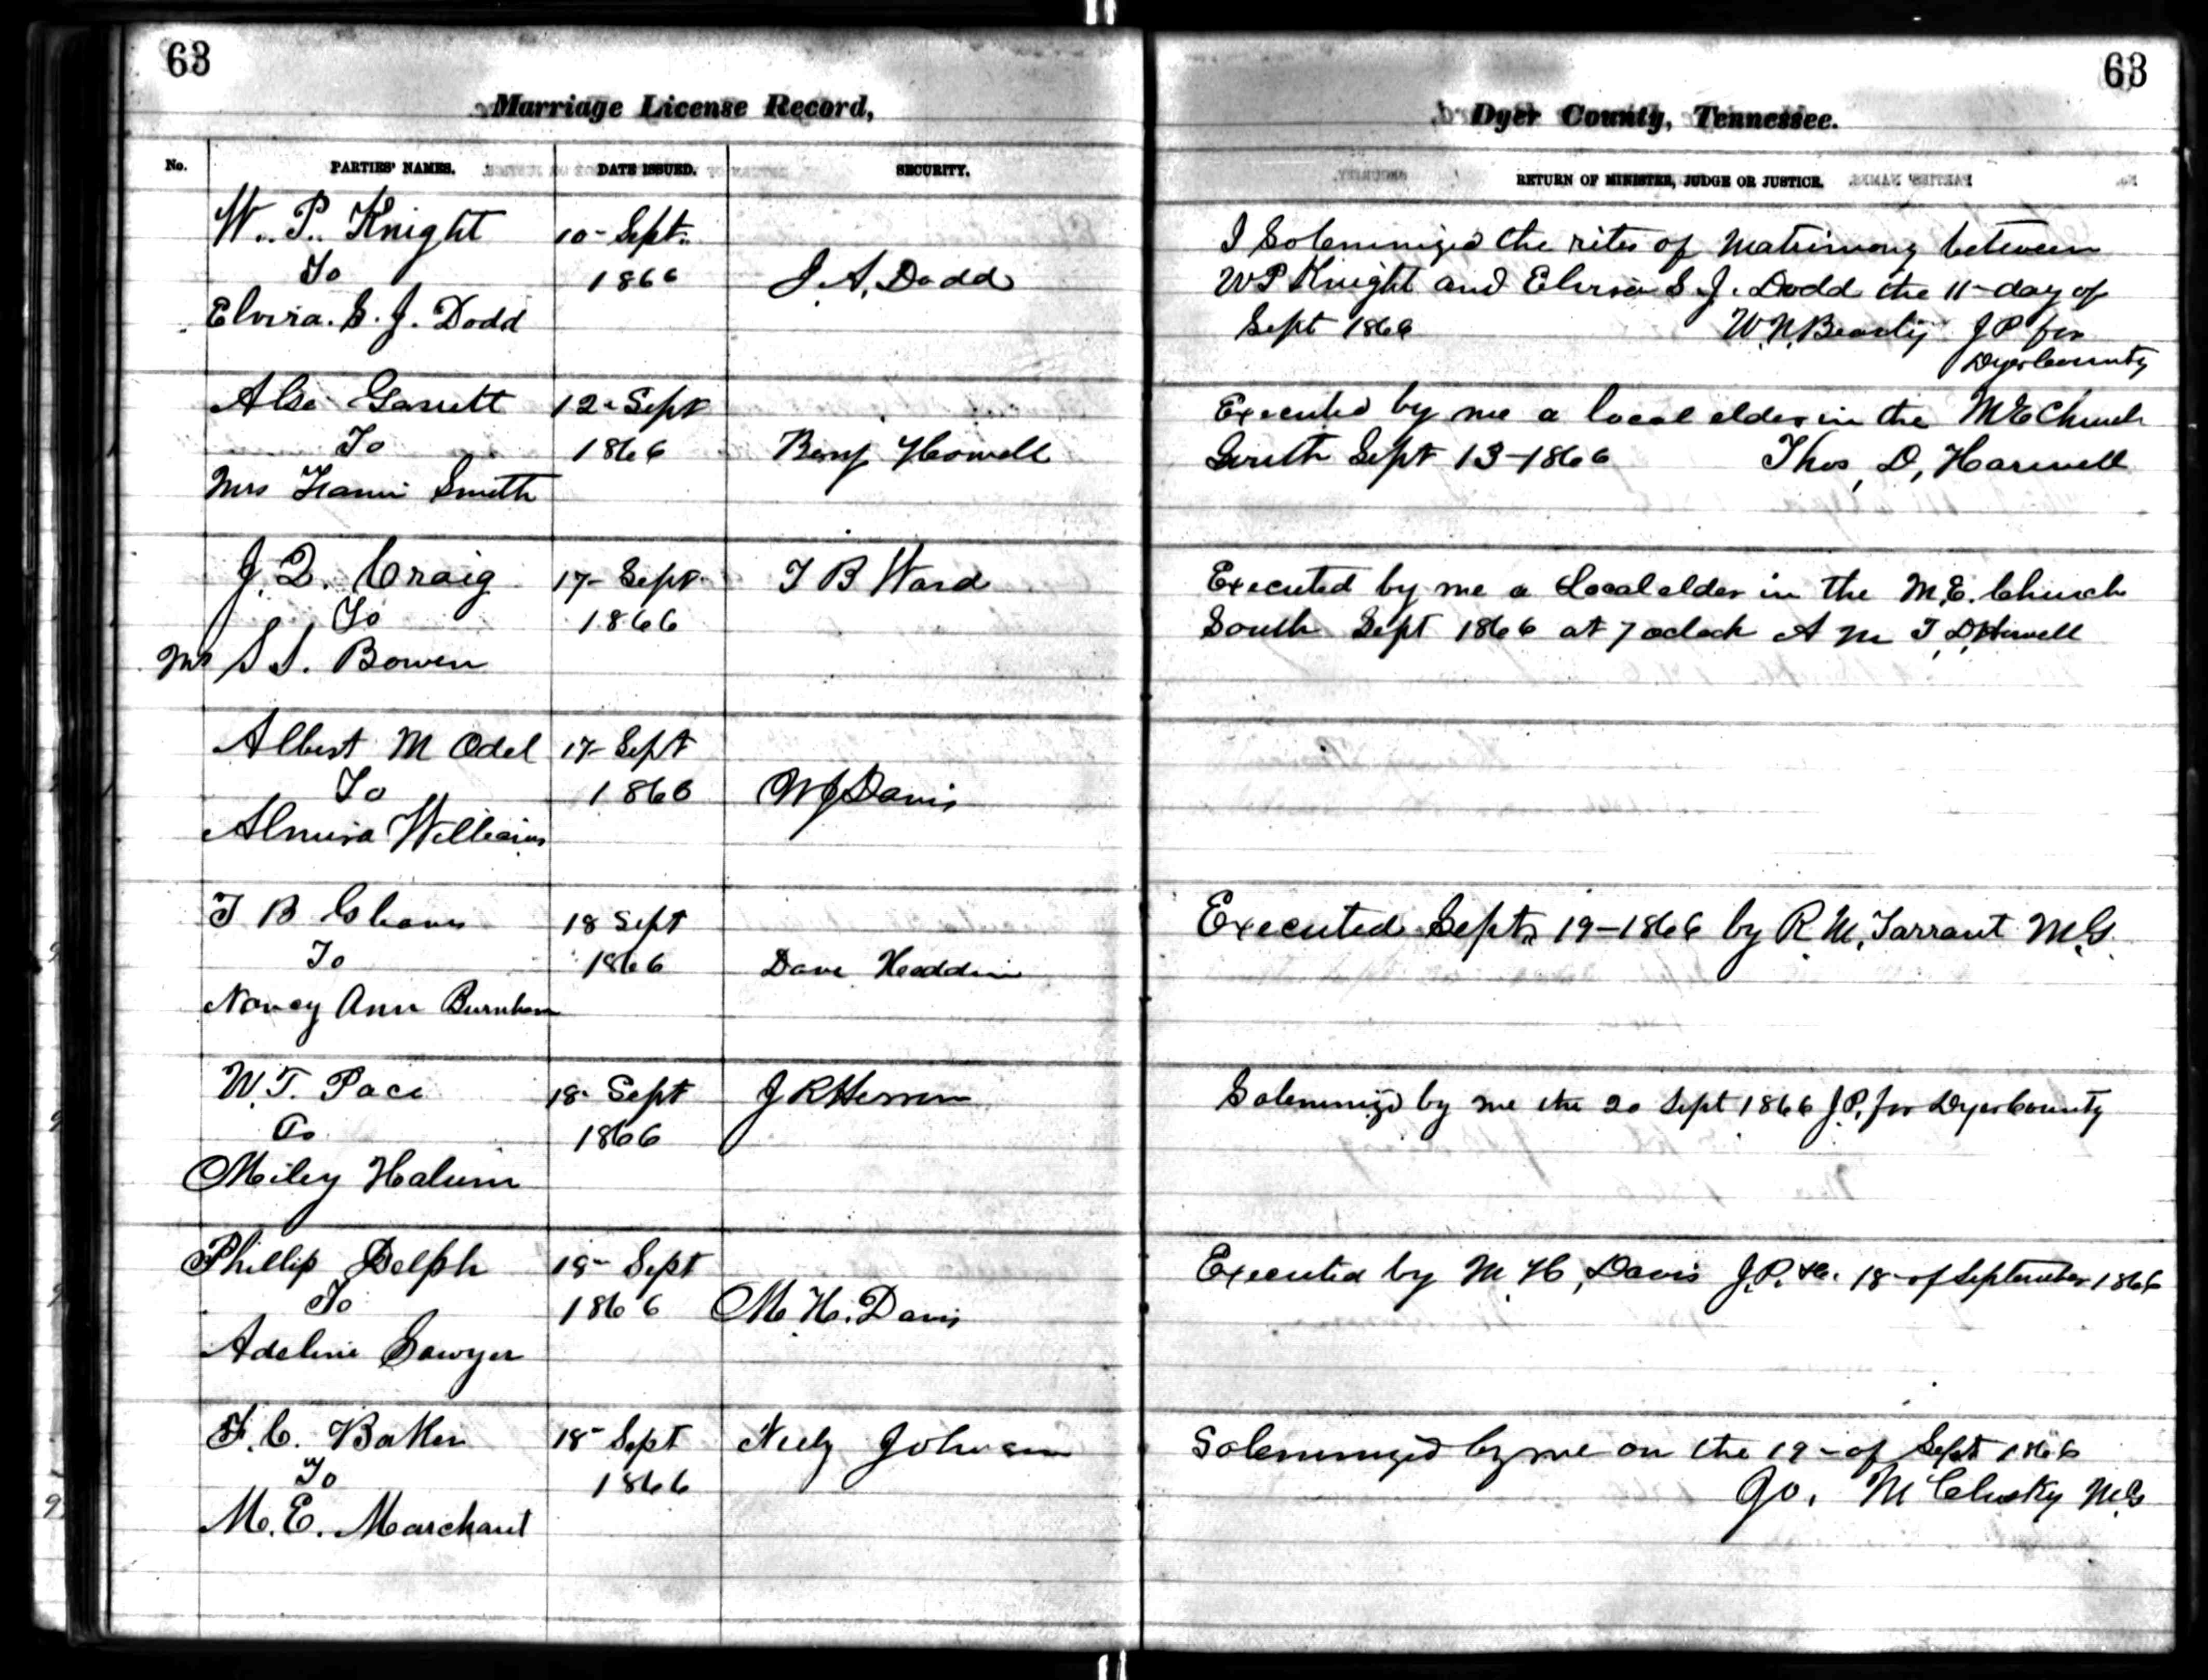 63
Marriage License Record,
No. PARTIES' NAMES. DATE ISSUED. SECURITY.
W. P. Knight 10- Sept.
To 1866 J. A. Dodd
Elvira. S. J. Dodd
Garrett 12- Sept
To 1866 Benj Howell
Mrs Smith
J. D. Craig 17- Sept. T B Ward
To 1866
S. Bowen
Albert M Odel 17- Sept
To 1866 W J Davis
Almira Williams
T B 18 Sept
To 1866 Dave
Nancy Ann Burnham
W. T. Pace 18- Sept J R Herron
To 1866
Miley
Phillip Delph 18- Sept
To 1866 M. H. Davis
Adeline Sawyer
F. C. Baker 18- Sept Neely Johnson
To 1866
M. E. Marchant
63
Dyer County, Tennessee.
RETURN OF MINISTER, JUDGE OR JUSTICE.
I Solemnized the rites of Matrimony between
W P Knight and Elvira S. J. Dodd the 11- day of
Sept 1866 W. N. Beasly J P for
Dyer County
Executed by me a local elder in the M E Church
South Sept 13-1866 Thos, D, Harwell
Executed by me a Local elder in the M.E. Church
South Sept 1866 at 7 oclock A M T, D, Harwell
Executed Sept. 19-1866 by R. M. Tarrant M.G.
Solemnized by me the 20 Sept 1866 J.P. for Dyer County
Executed by M. H, Davis J.P. &c. 18- of September 1866
Solemnized by me on the 19- of Sept 1866
Jo. McClusky M.G